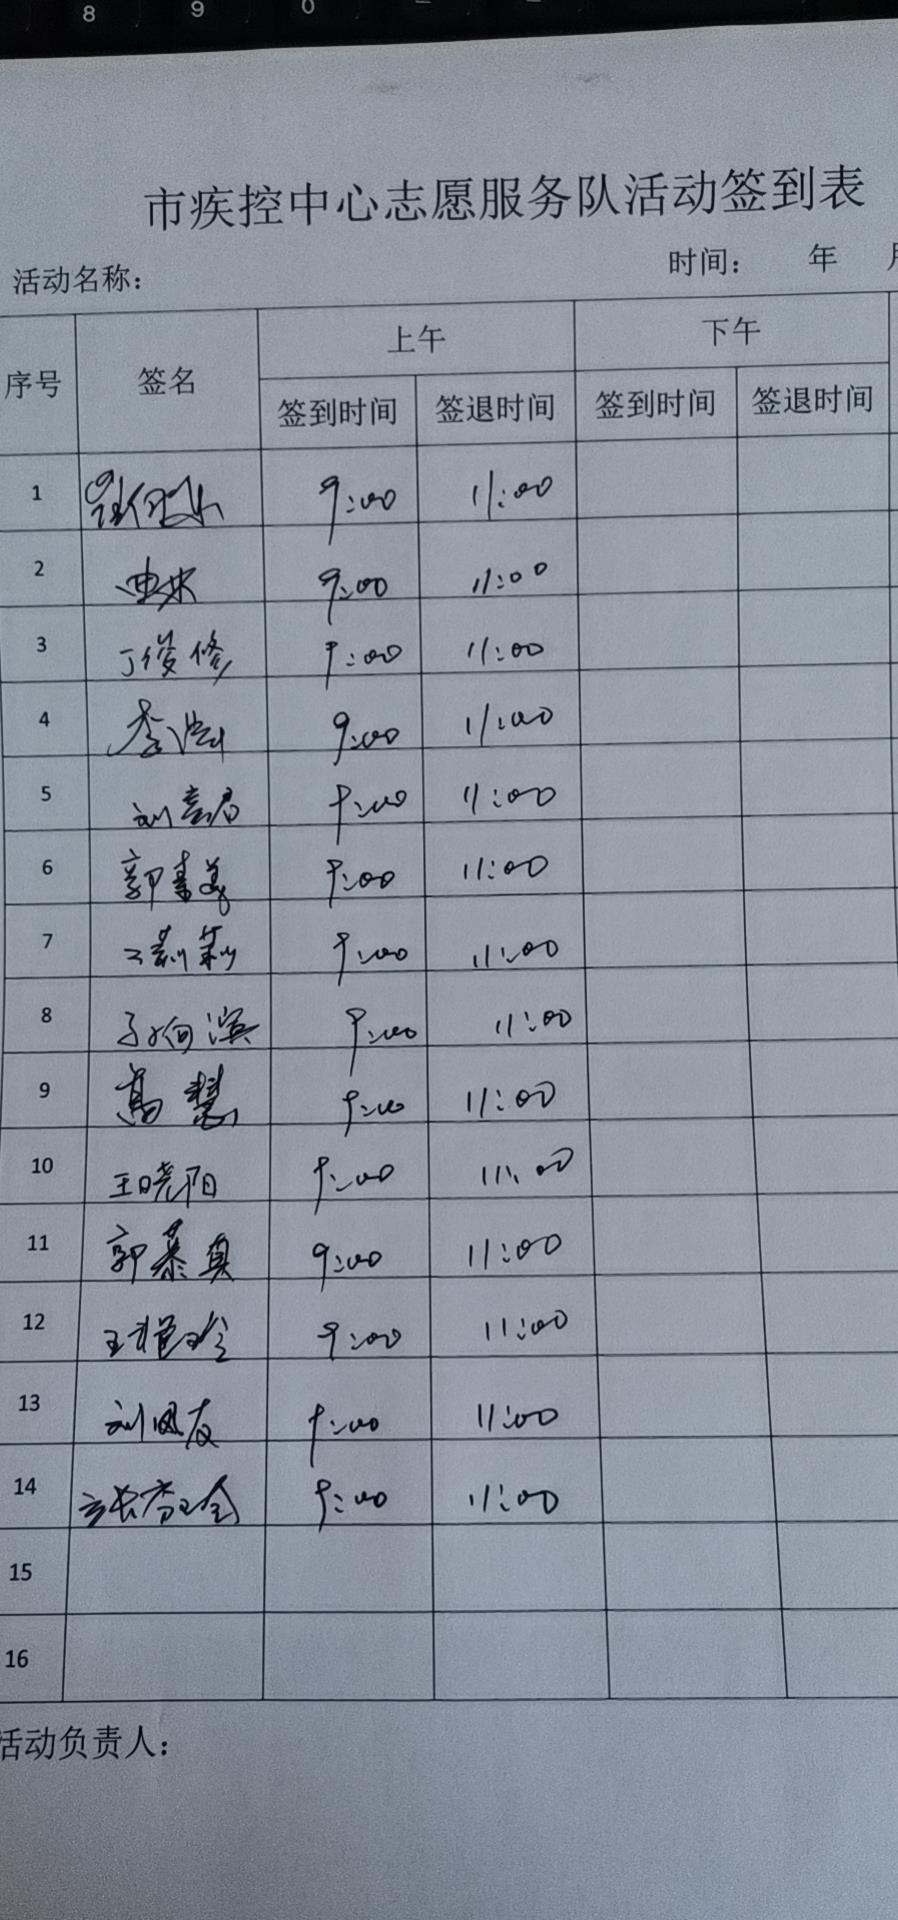 8 9 0
市疾控中心志愿服务队活动签到表
活动名称： 时间： 年
序号 签名 上午 下午
签到时间 签退时间 签到时间 签退时间
1 9:00 11:00
2 9:00 11:00
3 丁俊修 9:00 11:00
4 李浩 9:00 11:00
5 刘喜君 9:00 11:00
6 郭素美 9:00 11:00
7 9:00 11:00
8 9:00 11:00
9 高慧 9:00 11:00
10 王晓阳 9:00 11:00
11 郭慕真 9:00 11:00
12 9:00 11:00
13 刘凤友 9:00 11:00
14 9:00 11:00
15
16
活动负责人：